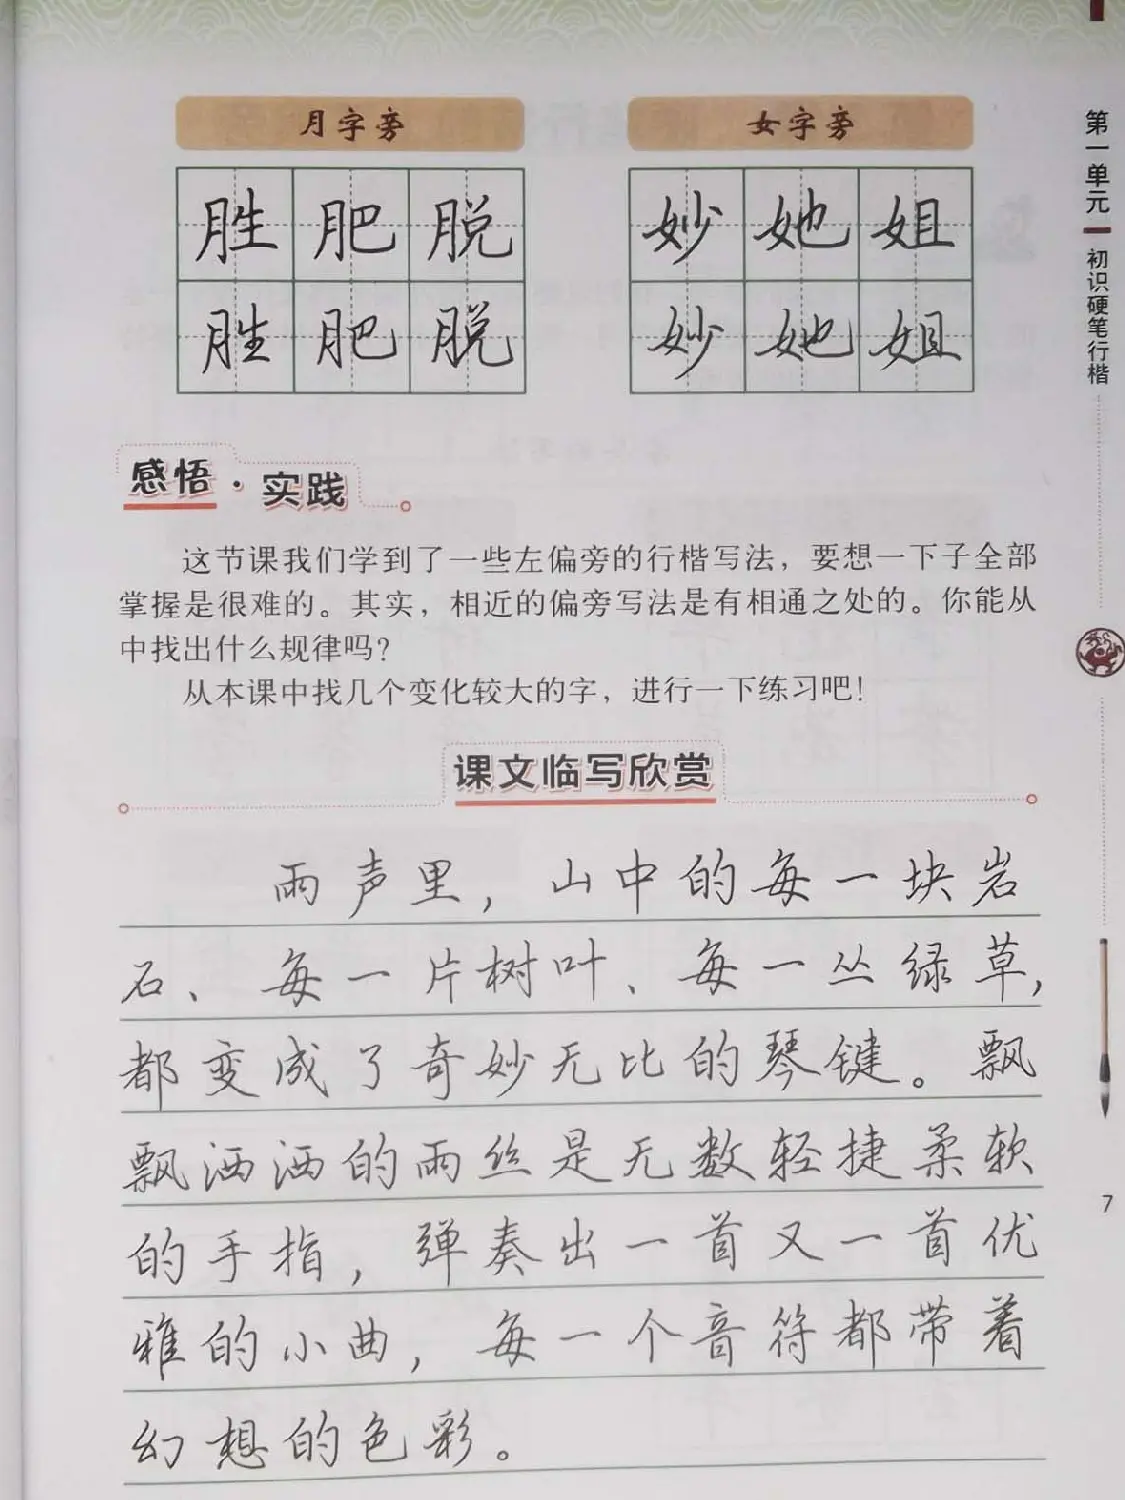 月字旁
女字旁
胜肥脱
妙她姐
胜肥脱
妙她姐
第一单元
初识硬笔行楷
感悟·实践
这节课我们学到了一些左偏旁的行楷写法，要想一下子全部
掌握是很难的。其实，相近的偏旁写法是有相通之处的。你能从
中找出什么规律吗？
从本课中找几个变化较大的字，进行一下练习吧！
课文临写欣赏
雨声里，山中的每一块岩
石、每一片树叶、每一丛绿草，
都变成了奇妙无比的琴键。飘
飘洒洒的雨丝是无数轻捷柔软
的手指，弹奏出一首又一首优
雅的小曲，每一个音符都带着
幻想的色彩。
7